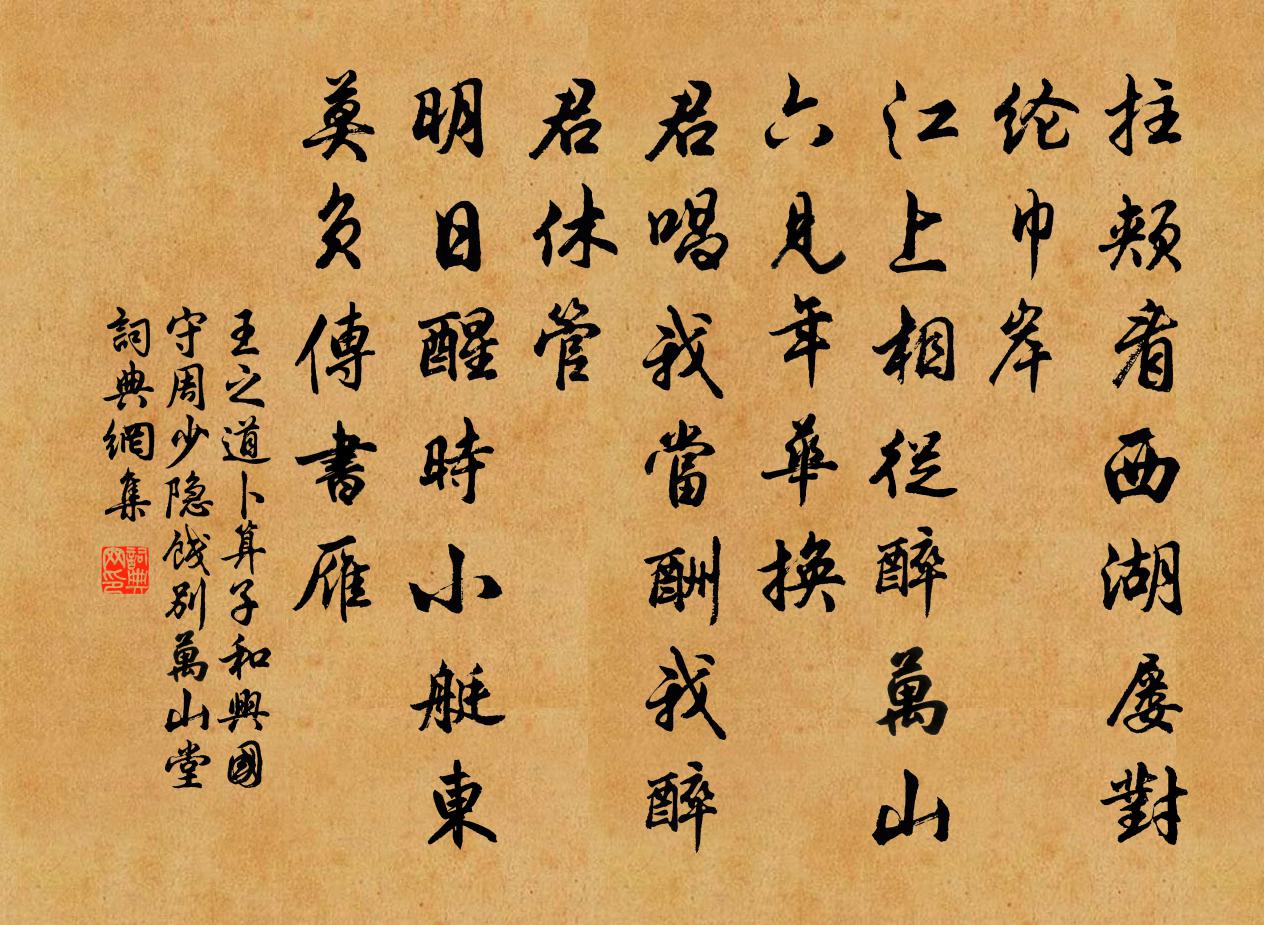 拄頰看西湖屡對
纶巾岸
江上相從醉萬山
六見年華換
君唱我當酬我醉
君休管
明日醒時小艇東
莫負傳書雁
王之道卜算子和興國
守周少隐餞别萬山堂
詞典網集
詞典网印